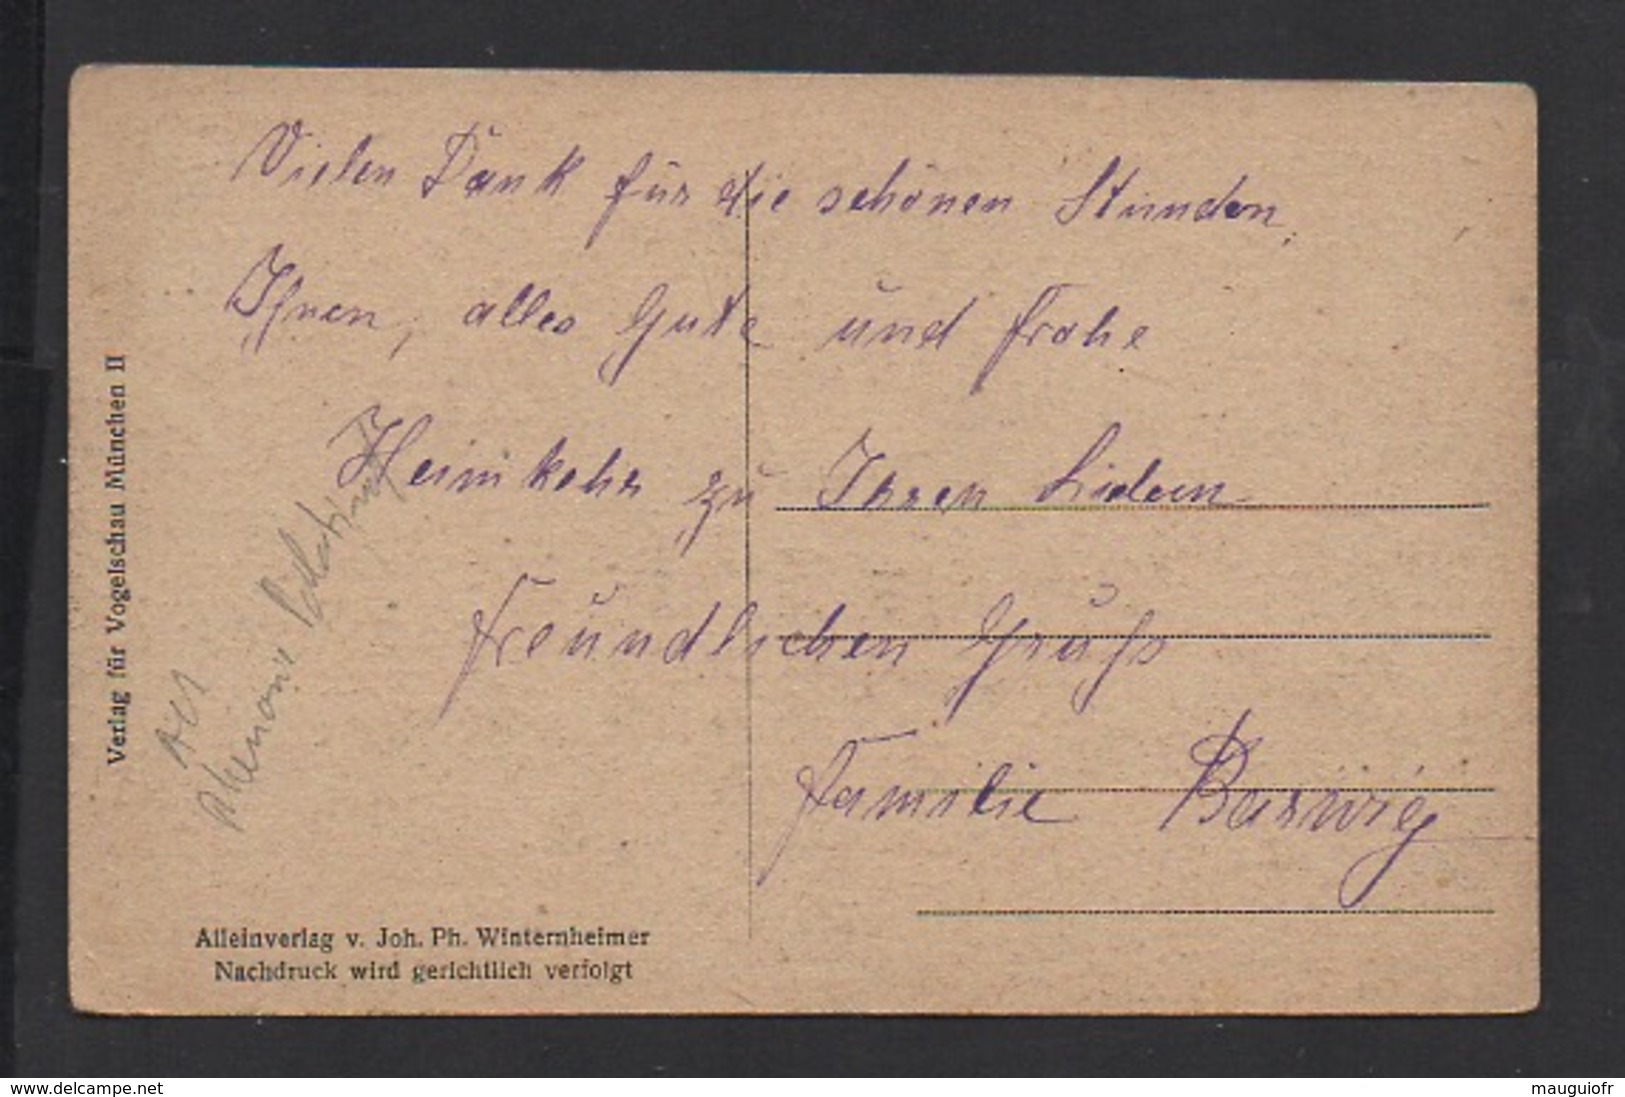 Vielen Dank für die schönen Stunden,
Ihnen, alles Gute und frohe
Heimkehr zu Ihren Lieben
Freundlichen Gruß
Familie Barwig
Verlag für Vogelschau München II
Alleinverlag v. Joh. Ph. Winternheimer
Nachdruck wird gerichtlich verfolgt
www.delcampe.net
mauguiofr